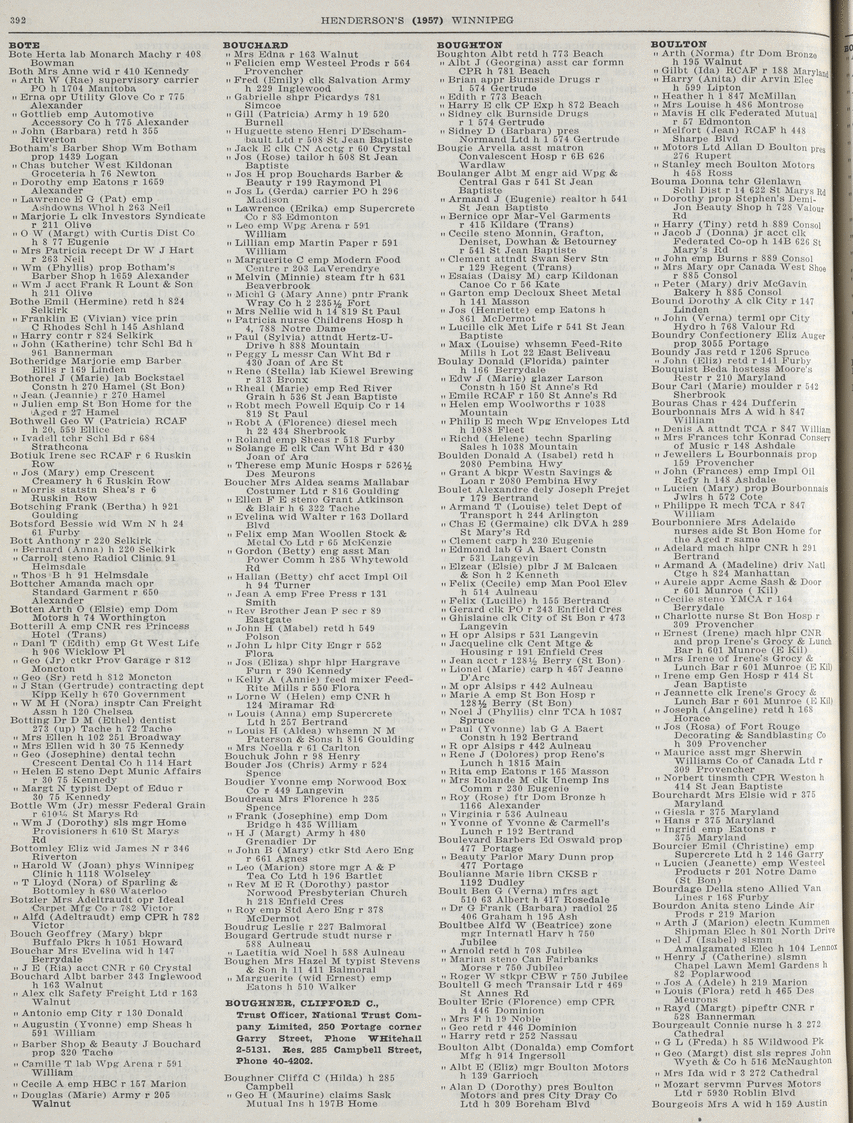 392
HENDERSON'S (1957) WINNIPEG
BOTE
Bote Herta lab Monarch Machy r 408
Bowman
Both Mrs Anne wid r 410 Kennedy
" Arth W (Rae) supervisory carrier
PO h 1704 Manitoba
" Erna opr Utility Glove Co r 775
Alexander
" Gottlieb emp Automotive
Accessory Co h 775 Alexander
" John (Barbara) retd h 355
Riverton
Botham's Barber Shop Wm Botham
prop 1439 Logan
" Chas butcher West Kildonan
Groceteria h 76 Newton
" Dorothy emp Eatons r 1659
Alexander
" Lawrence E G (Pat) emp
Ashdowns Whol h 263 Neil
" Marjorie L clk Investors Syndicate
r 211 Olive
" O W (Margt) with Curtis Dist Co
h 877 Eugenie
" Mrs Patricia recept Dr W J Hart
r 263 Neil
" Wm (Phyllis) prop Botham's
Barber Shop h 1659 Alexander
" Wm J acct Frank R Lount & Son
h 211 Olive
Bothe Emil (Hermine) retd h 824
Selkirk
" Franklin E (Vivian) vice prin
C Rhodes Schl h 145 Ashland
" Harry contr r 824 Selkirk
" John (Katherine) tchr Schl Bd h
961 Bannerman
Botheridge Marjorie emp Barber
Ellis r 169 Linden
Bothorel J (Marie) lab Bockstael
Constn h 270 Hamel (St Bon)
" Jean (Jeannie) r 270 Hamel
" Julien emp St Bon Home for the
Aged r 27 Hamel
Bothwell Geo W (Patricia) RCAF
h 20, 559 Ellice
" Ivadell tchr Schl Bd r 684
Strathcona
Botiuk Irene sec RCAF r 6 Ruskin
Row
" Jos (Mary) emp Crescent
Creamery h 6 Ruskin Row
" Morris statstn Shea's r 6
Ruskin Row
Botsching Frank (Bertha) h 921
Goulding
Botsford Bessie wid Wm N h 24
61 Furby
Bott Anthony r 220 Selkirk
" Bernard (Anna) h 220 Selkirk
" Carroll steno Radiol Clinic 91
Helmsdale
" Thos B h 91 Helmsdale
Bottcher Amanda mach opr
Standard Garment r 650
Alexander
Botten Arth O (Elsie) emp Dom
Motors h 74 Worthington
Botterill A emp CNR res Princess
Hotel (Trans)
" Danl T (Edith) emp Gt West Life
h 906 Wicklow Pl
" Geo (Jr) ctkr Prov Garage r 812
Moncton
" Geo (Sr) retd h 812 Moncton
" J Stan (Gertrude) contracting dept
Kipp Kelly h 670 Government
" W M H (Nora) insptr Can Freight
Assn h 120 Chelsea
Botting Dr D M (Ethel) dentist
273 (up) Tache h 72 Tache
" Mrs Ellen h 102 251 Broadway
" Mrs Ellen wid h 30 75 Kennedy
" Geo (Josephine) dental techn
Crescent Dental Co h 114 Hart
" Helen E steno Dept Munic Affairs
r 30 75 Kennedy
" Margt N typist Dept of Educ r
30 75 Kennedy
Bottle Wm (Jr) messr Federal Grain
r 610½ St Marys Rd
" Wm J (Dorothy) sls mgr Home
Provisioners h 610 St Marys
Rd
Bottomley Eliz wid James N r 346
Riverton
" Harold W (Joan) phys Winnipeg
Clinic h 1118 Wolseley
" T Lloyd (Nora) of Sparling &
Bottomley h 680 Waterloo
Botzler Mrs Adeltraudt opr Ideal
Carpet Mfg Co r 782 Victor
" Alfd (Adeltraudt) emp CPR h 782
Victor
Bouch Geoffrey (Mary) bkpr
Buffalo Pkrs h 1051 Howard
Bouchar Mrs Evelina wid h 147
Berrydale
" J E (Ria) acct CNR r 60 Crystal
Bouchard Albt barber 343 Inglewood
h 163 Walnut
" Alex clk Safety Freight Ltd r 163
Walnut
" Antonio emp City r 130 Donald
" Augustin (Yvonne) emp Sheas h
591 William
" Barber Shop & Beauty J Bouchard
prop 320 Tache
" Camille T lab Wpg Arena r 591
William
" Cecile A emp HBC r 157 Marion
" Douglas (Marie) Army r 205
Walnut
BOUCHARD
" Mrs Edna r 163 Walnut
" Felicien emp Westeel Prods r 564
Provencher
" Fred (Emily) clk Salvation Army
h 229 Inglewood
" Gabrielle shpr Picardys 781
Simcoe
" Gill (Patricia) Army h 19 520
Burnell
" Huguette steno Henri D'Escham-
bault Ltd r 508 St Jean Baptiste
" Jack E clk CN Acctg r 60 Crystal
" Jos (Rose) tailor h 508 St Jean
Baptiste
" Jos H prop Bouchards Barber &
Beauty r 199 Raymond Pl
" Jos L (Gerda) carrier PO h 296
Madison
" Lawrence (Erika) emp Supercrete
Co r 83 Edmonton
" Leo emp Wpg Arena r 591
William
" Lillian emp Martin Paper r 591
William
" Marguerite C emp Modern Food
Centre r 203 LaVerendrye
" Melvin (Minnie) steam ftr h 631
Beaverbrook
" Michl G (Mary Anne) pntr Frank
Wray Co h 2 235½ Fort
" Mrs Nellie wid h 14 819 St Paul
" Patricia nurse Childrens Hosp h
4, 788 Notre Dame
" Paul (Sylvia) attndt Hertz-U-
Drive h 888 Mountain
" Peggy L messr Can Wht Bd r
430 Joan of Arc St
" Rene (Stella) lab Kiewel Brewing
r 313 Bronx
" Rheal (Marie) emp Red River
Grain h 536 St Jean Baptiste
" Robt mech Powell Equip Co r 14
819 St Paul
" Robt A (Florence) diesel mech
h 22 434 Sherbrook
" Roland emp Sheas r 518 Furby
" Solange E clk Can Wht Bd r 430
Joan of Arc
" Therese emp Munic Hosps r 526½
Des Meurons
Boucher Mrs Aldea seams Mallabar
Costumer Ltd r 816 Goulding
" Ellen F E steno Grant Atkinson
& Blair h 6 322 Tache
" Evelina wid Walter r 163 Dollard
Blvd
" Felix emp Man Woollen Stock &
Metal Co Ltd r 65 McKenzie
" Gordon (Betty) eng asst Man
Power Comm h 285 Whytewold
Rd
" Hallan (Betty) chf acct Impl Oil
h 94 Turner
" Jean A emp Free Press r 131
Smith
" Rev Brother Jean P sec r 89
Eastgate
" John H (Mabel) retd h 549
Polson
" John L hlpr City Engr r 552
Flora
" Jos (Eliza) shpr hlpr Hargrave
Furn r 390 Kennedy
" Kelly A (Annie) feed mixer Feed-
Rite Mills r 550 Flora
" Lorne W (Helen) emp CNR h
124 Miramar Rd
" Louis (Anna) emp Supercrete
Ltd h 257 Bertrand
" Louis H (Aldea) whsemn N M
Paterson & Sons h 816 Goulding
" Mrs Noella r 61 Carlton
Bouchuk John r 98 Henry
Bouder Jos (Chris) Army r 524
Spence
Boudier Yvonne emp Norwood Box
Co r 449 Langevin
Boudreau Mrs Florence h 235
Spence
" Frank (Josephine) emp Dom
Bridge h 435 William
" H J (Margt) Army h 480
Grenadier Dr
" John B (Mary) ctkr Std Aero Eng
r 661 Agnes
" Leo (Marion) store mgr A & P
Tea Co Ltd h 196 Bartlet
" Rev M E R (Dorothy) pastor
Norwood Presbyterian Church
h 218 Enfield Cres
" Roy emp Std Aero Eng r 378
McDermot
Boudrug Leslie r 227 Balmoral
Bougard Gertrude studt nurse r
588 Aulneau
" Laetitia wid Noel h 588 Aulneau
Boughen Mrs Hazel M typist Stevens
& Son h 11 411 Balmoral
" Marguerite (wid Ernest) emp
Eatons h 510 Walker
BOUGHNER, CLIFFORD C.,
Trust Officer, National Trust Com-
pany Limited, 250 Portage corner
Garry Street, Phone WHitehall
2-5131. Res. 285 Campbell Street,
Phone 40-4202.
Boughner Cliffd C (Hilda) h 285
Campbell
" Geo H (Maurine) claims Sask
Mutual Ins h 197B Home
BOUGHTON
Boughton Albt retd h 773 Beach
" Albt J (Georgina) asst car formn
CPR h 781 Beach
" Brian appr Burnside Drugs r
1 574 Gertrude
" Edith r 773 Beach
" Harry E clk CP Exp h 872 Beach
" Sidney clk Burnside Drugs
r 1 574 Gertrude
" Sidney D (Barbara) pres
Normand Ltd h 1 574 Gertrude
Bougie Arvella asst matron
Convalescent Hosp r 6B 626
Wardlaw
Boulanger Albt M engr aid Wpg &
Central Gas r 541 St Jean
Baptiste
" Armand J (Eugenie) realtor h 541
St Jean Baptiste
" Bernice opr Mar-Vel Garments
r 415 Kildare (Trans)
" Cecile steno Monnin, Grafton,
Deniset, Dowhan & Betourney
r 541 St Jean Baptiste
" Clement attndt Swan Serv Stn
r 129 Regent (Trans)
" Esaias (Daisy M) carp Kildonan
Canoe Co r 56 Kate
" Garton emp Decloux Sheet Metal
h 141 Masson
" Jos (Henriette) emp Eatons h
861 McDermot
" Lucille clk Met Life r 541 St Jean
Baptiste
" Max (Louise) whsemn Feed-Rite
Mills h Lot 22 East Beliveau
Boulay Donald (Florida) painter
h 166 Berrydale
" Edw J (Marie) glazer Larson
Constn h 150 St Anne's Rd
" Emile RCAF r 150 St Anne's Rd
" Helen emp Woolworths r 1038
Mountain
" Philip E mech Wpg Envelopes Ltd
h 1088 Fleet
" Richd (Helene) techn Sparling
Sales h 1038 Mountain
Boulden Donald A (Isabel) retd h
2080 Pembina Hwy
" Grant A bkpr Westn Savings &
Loan r 2080 Pembina Hwy
Boulet Alexandre dely Joseph Prejet
r 179 Bertrand
" Armand T (Louise) telet Dept of
Transport h 244 Arlington
" Chas E (Germaine) clk DVA h 289
St Mary's Rd
" Clement carp h 230 Eugenie
" Edmond lab G A Baert Constn
r 531 Langevin
" Elzear (Elsie) plbr J M Balcaen
& Son h 2 Kenneth
" Felix (Cecile) emp Man Pool Elev
h 514 Aulneau
" Felix (Lucille) h 155 Bertrand
" Gerard clk PO r 243 Enfield Cres
" Ghislaine clk City of St Bon r 473
Langevin
" H opr Alsips r 531 Langevin
" Jacqueline clk Cent Mtge &
Housing r 191 Enfield Cres
" Jean acct r 128½ Berry (St Bon)
" Lionel (Marie) carp h 457 Jeanne
D'Arc
" M opr Alsips r 442 Aulneau
" Marie A emp St Bon Hosp r
128½ Berry (St Bon)
" Noel J (Phyllis) clnr TCA h 1087
Spruce
" Paul (Yvonne) lab G A Baert
Constn h 192 Bertrand
" R opr Alsips r 442 Aulneau
" Rene J (Dolores) prop Rene's
Lunch h 1815 Main
" Rita emp Eatons r 165 Masson
" Mrs Rolande M clk Unemp Ins
Comm r 230 Eugenie
" Roy (Rose) ftr Dom Bronze h
1166 Alexander
" Virginia r 536 Aulneau
" Yvonne of Yvonne & Carmell's
Lunch r 192 Bertrand
Boulevard Barbers Ed Oswald prop
477 Portage
" Beauty Parlor Mary Dunn prop
477 Portage
Boulianne Marie librn CKSB r
1192 Dudley
Boult Ben G (Verna) mfrs agt
510 63 Albert h 417 Rosedale
" Dr G Frank (Barbara) radiol 25
406 Graham h 195 Ash
Boultbee Alfd W (Beatrice) zone
mgr Internatl Harv h 750
Jubilee
" Arnold retd h 708 Jubilee
" Marian steno Can Fairbanks
Morse r 750 Jubilee
" Roger W stkpr CBW r 750 Jubilee
Boultell G mech Transair Ltd r 469
St Annes Rd
Boulter Eric (Florence) emp CPR
h 446 Dominion
" Mrs F h 19 Noble
" Geo retd r 446 Dominion
" Harry retd r 252 Nassau
Boulton Albt (Donalda) emp Comfort
Mfg h 914 Ingersoll
" Albt E (Eliz) mgr Boulton Motors
h 139 Garrioch
" Alan D (Dorothy) pres Boulton
Motors and pres City Dray Co
Ltd h 309 Boreham Blvd
BOULTON
" Arth (Norma) ftr Dom Bronze
h 195 Walnut
" Gilbt (Ida) RCAF r 188 Maryland
" Harry (Anita) dir Arvin Elec
h 599 Lipton
" Heather h 1 847 McMillan
" Mrs Louise h 486 Montrose
" Mavis H clk Federated Mutual
r 57 Edmonton
" Melfort (Jean) RCAF h 448
Sharpe Blvd
" Motors Ltd Allan D Boulton pres
276 Rupert
" Stanley mech Boulton Motors
h 458 Ross
Bouma Donna tchr Glenlawn
Schl Dist r 14 622 St Marys Rd
" Dorothy prop Stephen's Demi-
Jon Beauty Shop h 728 Valour
Rd
" Harry (Tiny) retd h 889 Consol
" Jacob J (Donna) jr acct clk
Federated Co-op h 14B 626 St
Mary's Rd
" John emp Burns r 889 Consol
" Mrs Mary opr Canada West Shoe
r 885 Consol
" Peter (Mary) driv McGavin
Bakery h 885 Consol
Bound Dorothy A clk City r 147
Linden
" John (Verna) terml opr City
Hydro h 768 Valour Rd
Boundry Confectionery Eliz Auger
prop 3055 Portage
Boundy Jas retd r 1206 Spruce
" John (Eliz) retd r 141 Furby
Bouquist Beda hostess Moore's
Restr r 210 Maryland
Bour Carl (Marie) moulder r 542
Sherbrook
Bouras Chas r 424 Dufferin
Bourbonnais Mrs A wid h 847
William
" Denis A attndt TCA r 847 William
" Mrs Frances tchr Konrad Conserv
of Music r 148 Ashdale
" Jewellers L Bourbonnais prop
159 Provencher
" John (Frances) emp Impl Oil
Refy h 148 Ashdale
" Lucien (Mary) prop Bourbonnais
Jwlrs h 572 Cote
" Philippe R mech TCA r 847
William
Bourbonniere Mrs Adelaide
nurses aide St Bon Home for
the Aged r same
" Adelard mach hlpr CNR h 291
Bertrand
" Armand A (Madeline) driv Natl
Ctge h 824 Manhattan
" Aurele appr Acme Sash & Door
r 601 Munroe ( Kil)
" Cecile steno YMCA r 164
Berrydale
" Charlotte nurse St Bon Hosp r
309 Provencher
" Ernest (Irene) mach hlpr CNR
and prop Irene's Grocy & Lunch
Bar h 601 Munroe (E Kil)
" Mrs Irene of Irene's Grocy &
Lunch Bar r 601 Munroe (E Kil)
" Irene emp Gen Hosp r 414 St
Jean Baptiste
" Jeannette clk Irene's Grocy &
Lunch Bar r 601 Munroe (E Kil)
" Joseph (Angeline) retd h 168
Horace
" Jos (Rosa) of Fort Rouge
Decorating & Sandblasting Co
h 309 Provencher
" Maurice asst mgr Sherwin
Williams Co of Canada Ltd r
309 Provencher
" Norbert tinsmth CPR Weston h
414 St Jean Baptiste
Bourchardt Mrs Elsie wid r 375
Maryland
" Giesla r 375 Maryland
" Hans r 375 Maryland
" Ingrid emp Eatons r
375 Maryland
Bourcier Emil (Christine) emp
Supercrete Ltd h 2 146 Garry
" Lucien (Jeanette) emp Westeel
Products r 201 Notre Dame
(St Bon)
Bourdage Della steno Allied Van
Lines r 168 Furby
Bourdon Anita steno Linde Air
Prods r 219 Marion
" Arth J (Marion) electn Kummen
Shipman Elec h 801 North Drive
" Del J (Isabel) slsmn
Amalgamated Elec h 104 Lennox
" Henry J (Catherine) slsmn
Chapel Lawn Meml Gardens h
82 Poplarwood
" Jos A (Adele) h 219 Marion
" Louis (Flora) retd h 465 Des
Meurons
" Rayd (Margt) pipeftr CNR r
528 Bannerman
Bourgeault Connie nurse h 3 272
Cathedral
" G L (Freda) h 85 Wildwood Pk
" Geo (Margt) dist sls repres John
Wyeth & Co h 516 McNaughton
" Mrs Ida wid r 3 272 Cathedral
" Mozart servmn Purves Motors
Ltd r 5930 Roblin Blvd
Bourgeois Mrs A wid h 159 Austin